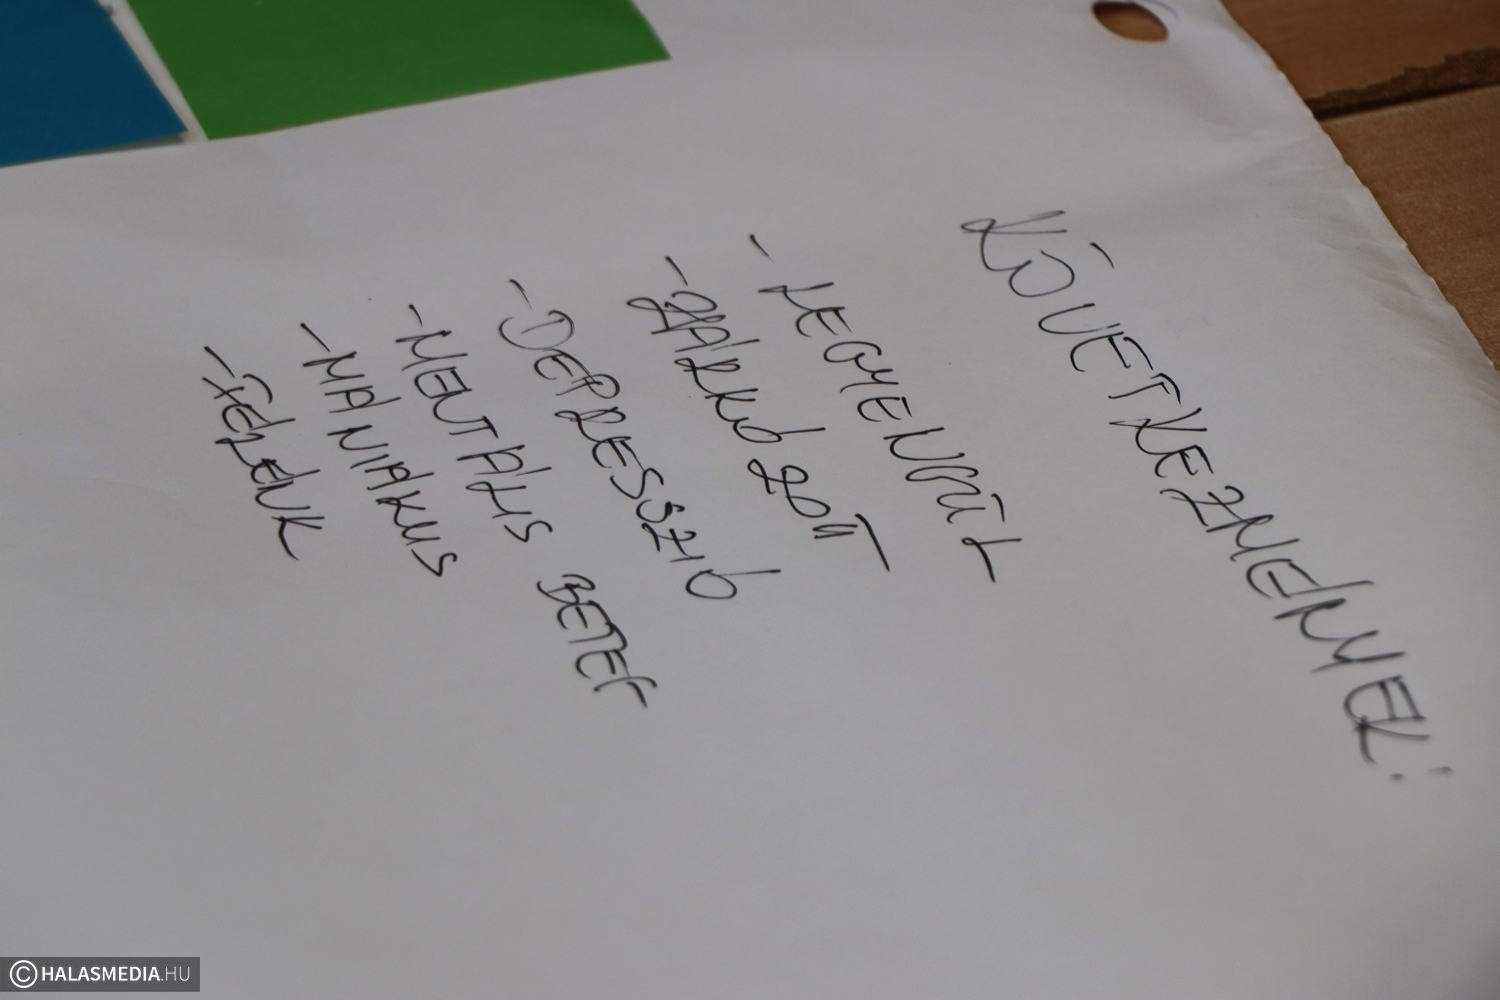 KÖVETKEZMÉNYEK:
- LEGYENGÜL
- ZÁRKÓZOTT
- DEPRESSZIÓ
- MENTÁLIS BETEG
- MÁNIÁKUS
- FÉLÉNK
© HALASMEDIA.HU